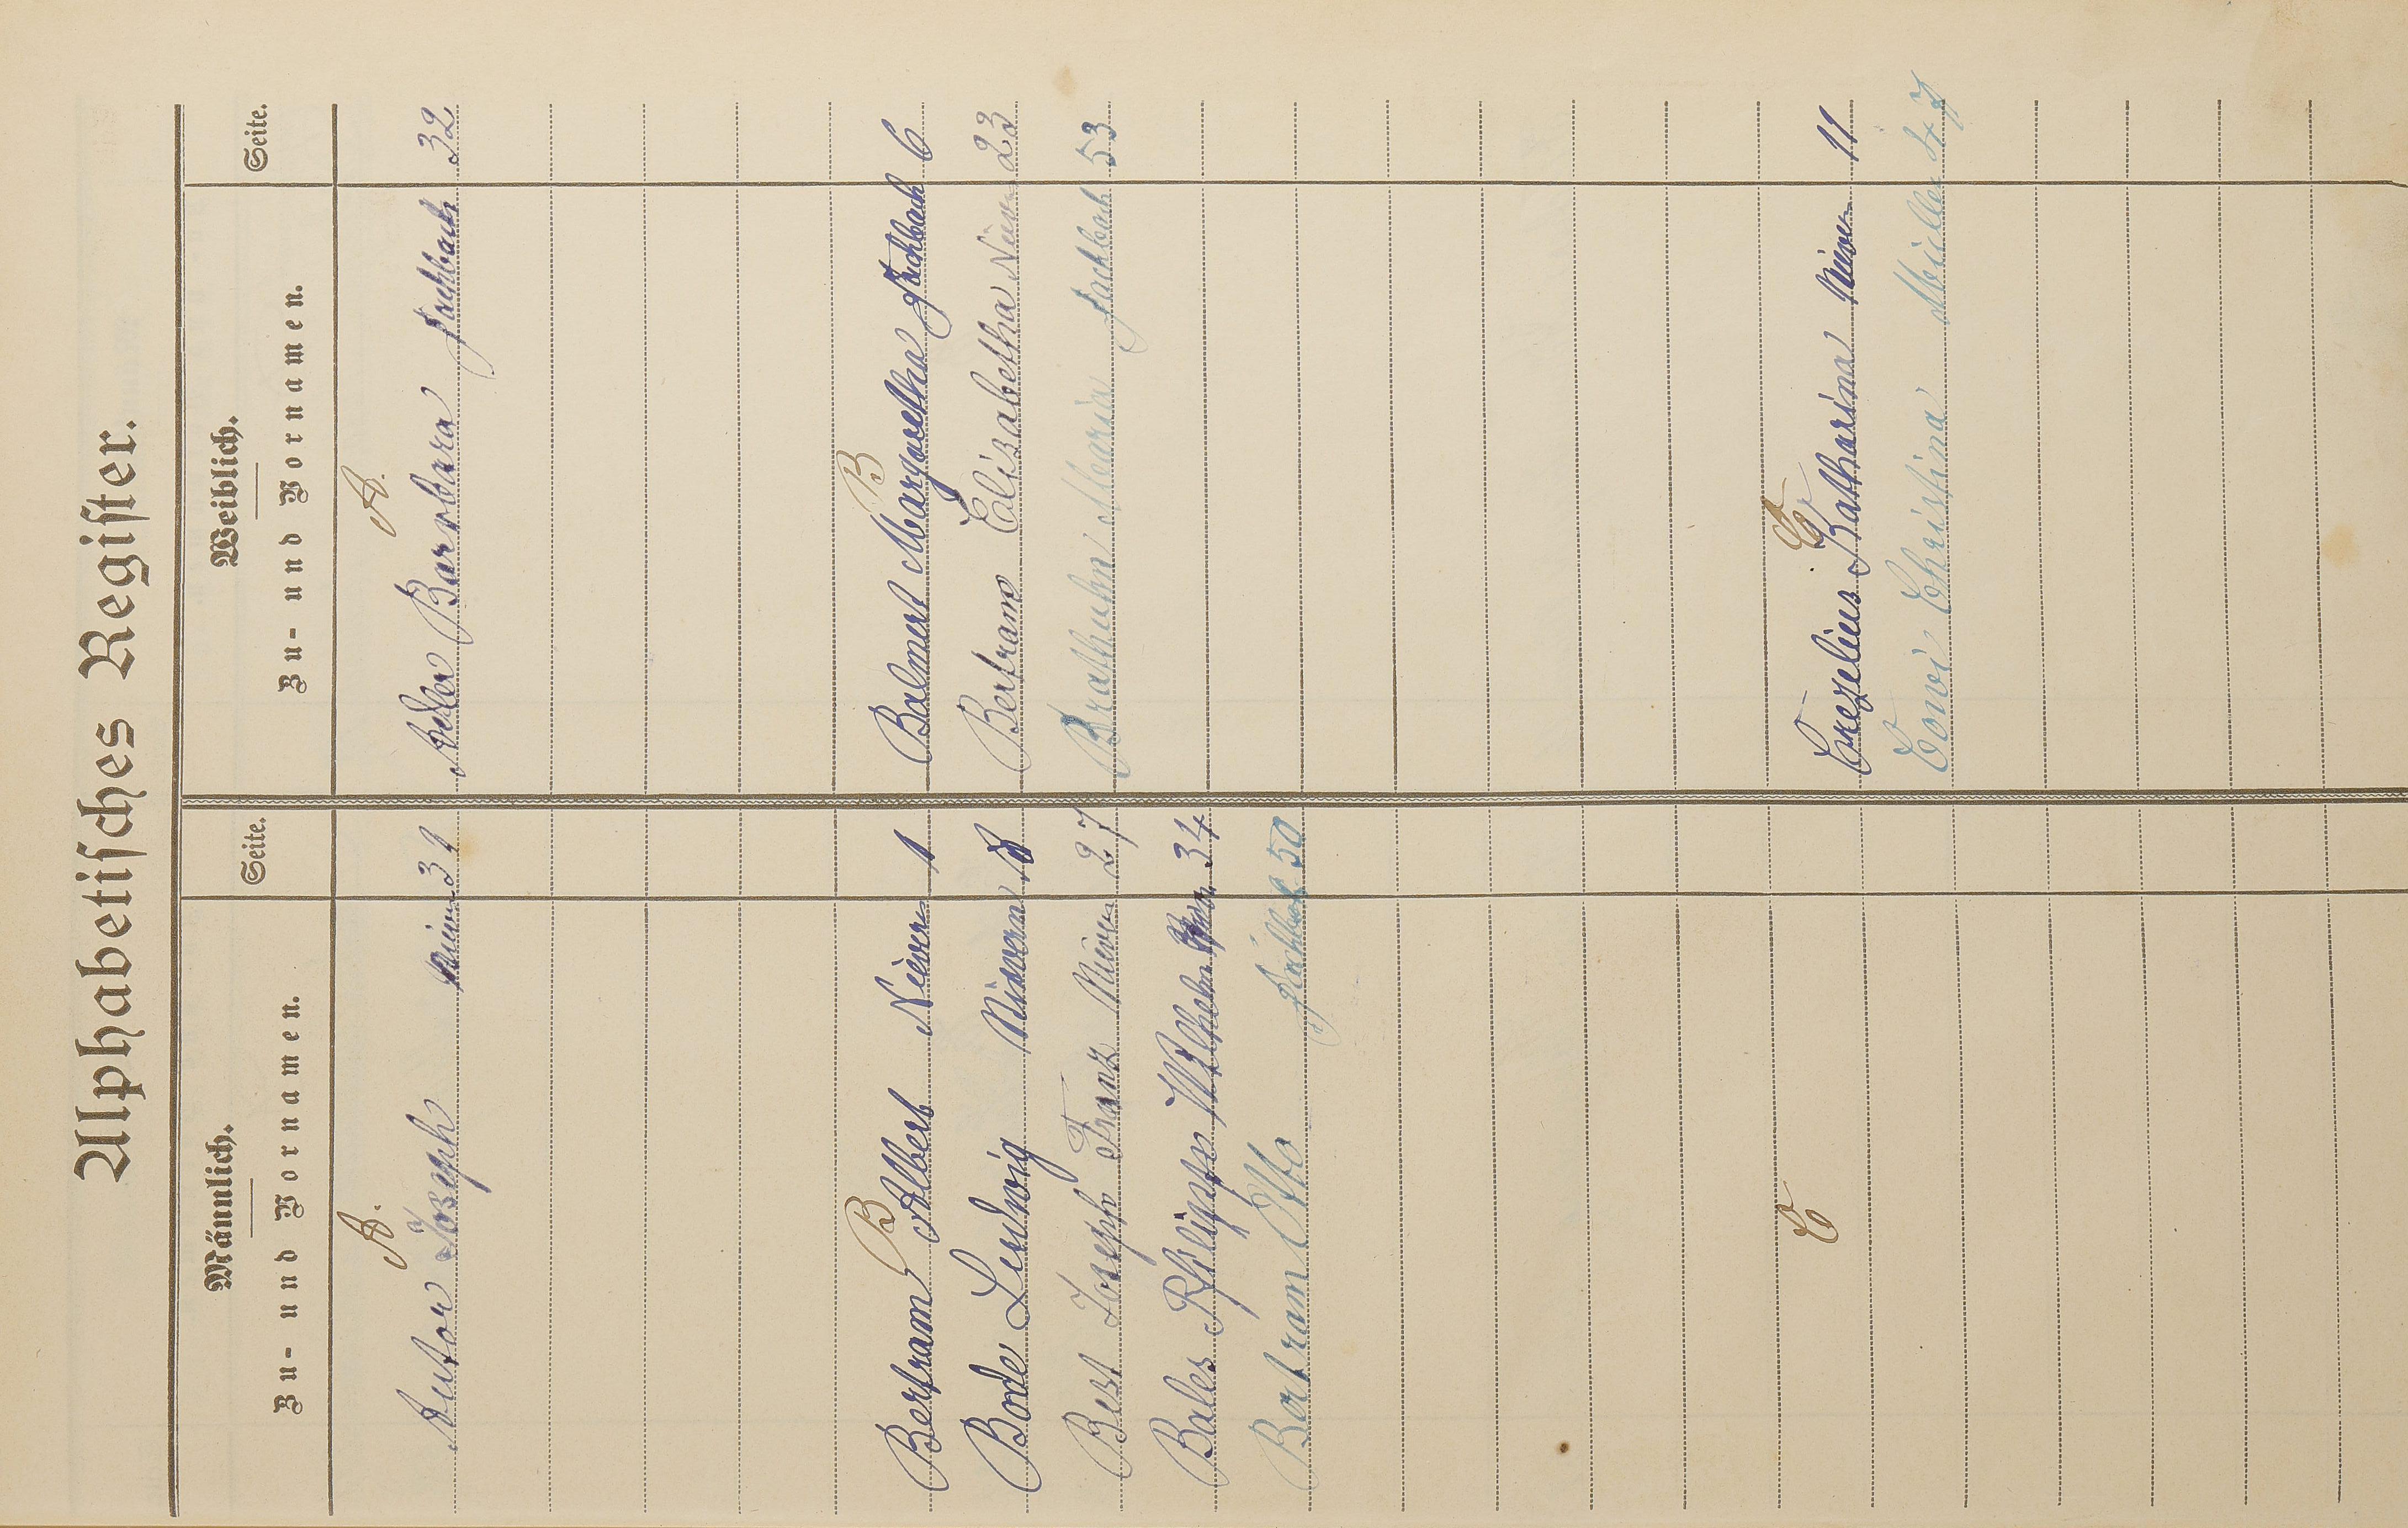 Alphabetisches Register.
Männlich. Weiblich.
Zu- und Vornamen. Seite. Zu- und Vornamen. Seite.
A. A.
Autor Joseph Nievern 31 Adler Barbara Fachbach 32
B B
Bertram Albert Nievern 1 Balmert Margaretha Fachbach 6
Bode Ludwig Nievern 18 Bertram Elisabetha Nievern 23
Best Joseph Franz Nievern 27 Brathuhn Maria Fachbach 53
Bales Philipp Wilhelm 34
Bertram Otto Fachbach 50
C C
Crezelius Katharina Nievern 11
Christina 47